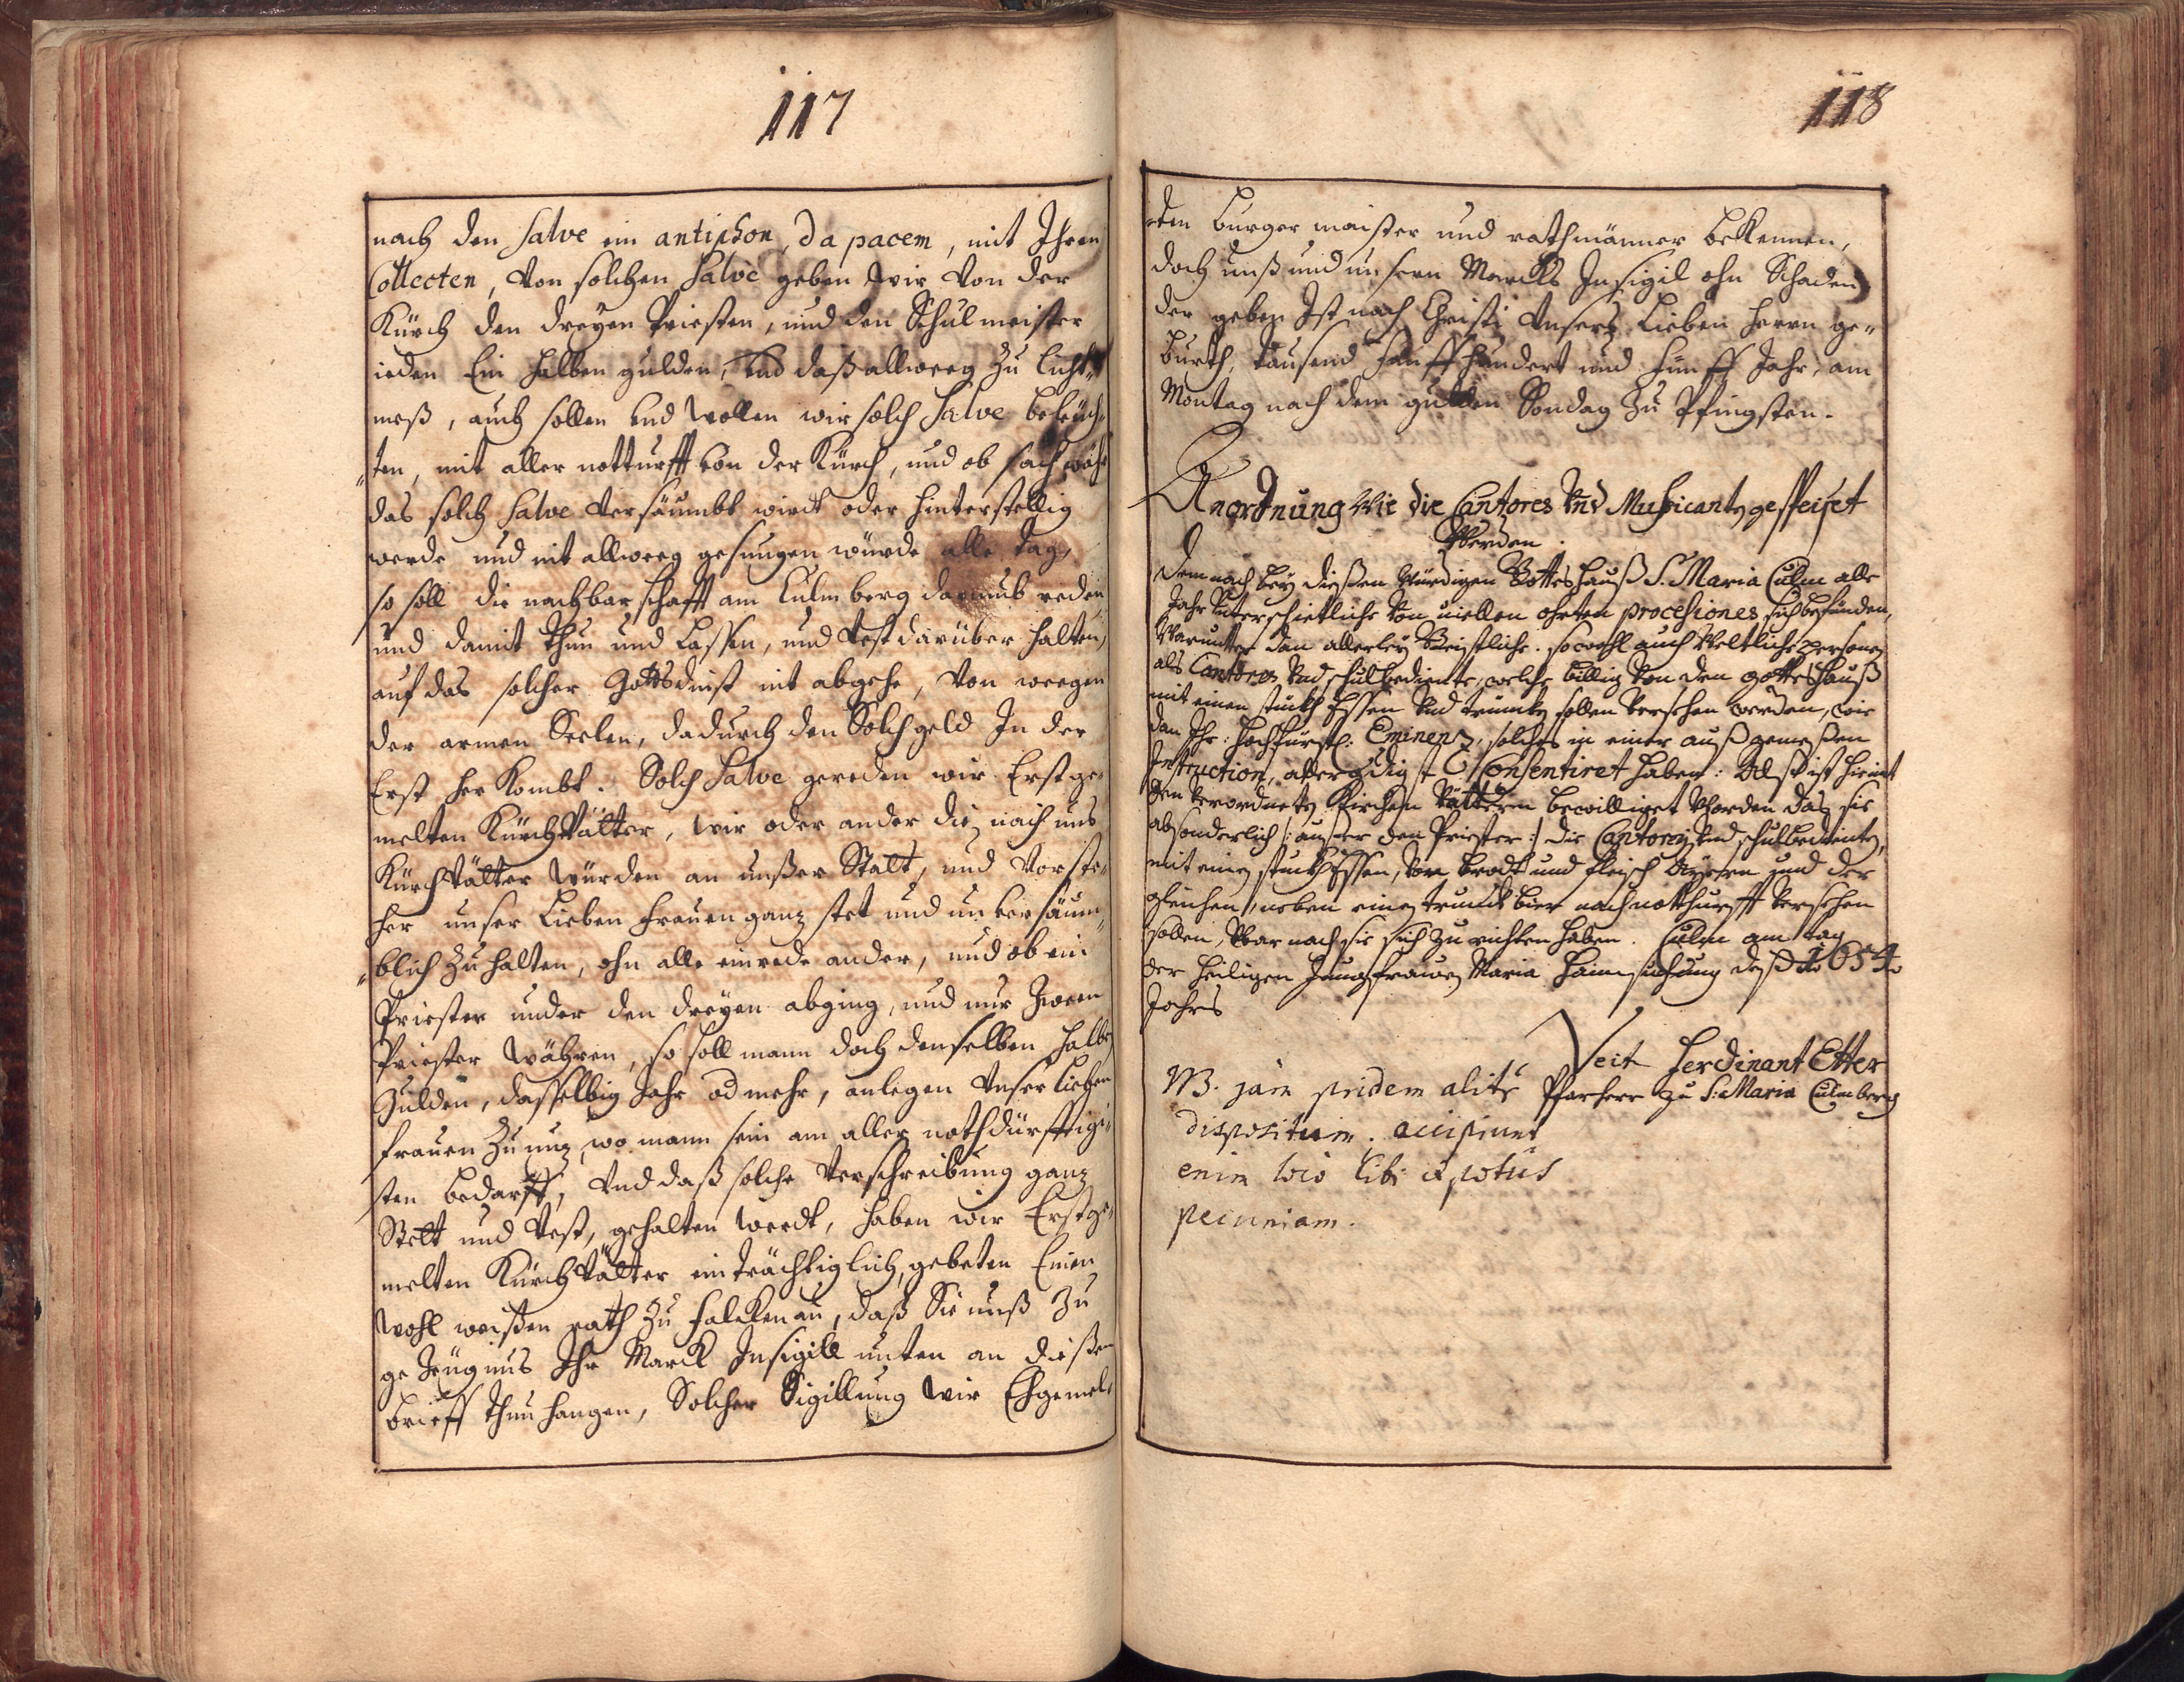 117
nach den Salve ein antiphon, da pacem, mit Ihren
Collecten, Von solchen Salve geben wir Von der
Kürch den dreyen Priesten, und den Schulmeister
ieden Ein halben gulden, und daß allweeg zu licht-
meß, auch sollen und wollen wir solch Salve beleüch-
ten, mit aller notturfft von der Kürch, und ob sach wäh
das solch Salve Versäumbt wirdt oder hinterstellig
werde und nit allweeg gesungen würde alle tag,
so soll die nachbarschafft am Culm berg darumb reden
und damit thun und Lassen, und Vest darüber halten,
auf das solcher Gottsdinst nit abgehe, Von weegen
der armen Seelen, dadurch den Solch geld In der
Erst her kombt. Solch Salve gereden wir Erstge-
melten KürchVätter, wir oder ander die nach uns
KürchVätter würden an unßer Statt, und Vorste-
her unser Lieben frauen ganz stet und unversäum-
blich zu halten, ohn alle einrede ander, und ob ein
Priester under den dreyen abging, und nur Zween
Priester wähen, so soll mann doch denselben halben
Gulden, dasselbig Jahr od mehr, anlegen Unser lieben
frauen zu nuz, wo mann sein am aller nothdürfftig-
sten bedarff, Und daß solche Verschreibung ganz
Stett und Vest, gehalten werdt, haben wir Erstge-
melten KürchVätter einträchtiglich, gebeten Einen
Wohl weißen rath zu falckenau, daß Sie unß zu
gezeügnus Ihr Marck Insigill unten an dießen
brieff thun hangen, Solcher Sigillung wir Ehgemel-
118
ten burgermaister und rathmänner bekennen,
doch unß und unsern Marckts Insigil ohn Schaden
der geben Ist nach Christi Unsers Lieben herrn ge-
burth, tausend fünff hundert und fünff Jahr, am
Montag nach dem gulden Sondag zu Pfingsten.
Anordnung Wie die Cantores Und Mussicanten gespeiset
Werden.
Demnach bey dießen Würdigen Gotteshauß S. Maria Culm alle
Jahr Unterschietliche Von viellen ohrten processiones sich befünden,
Warunter dan allerley Geistliche. sowohl auch Weltliche personen
als Cantores Und schulbediente, welche billig Von den gotteshauß
mit einen stückh Essen Und trunckh sollen Versehen werden, wie
dan Ihr: Hochfürstl: Eminenz, solches in einer außgemeßen
Instruction, allergdigst Consentiret haben: Alß ist hiemit
den Verordneten Kirchen Vättern bewilliget Worden das sie
absonderlich /: außer den Priester :/ die Cantores Und schulbediente,
mit einen stückh Essen, Von brodt und fleisch Käßen und der
gleichen, neben einen trunckh bier nach notthurfft Versehen
sollen, Warnach sie sich zu richten haben. Culm am tag
der heiligen Jungfrauen Maria Haimsuchung deß 1654.
Jahrs
Veit Ferdinant Etter
Pfarherr zu S: Maria Culm berg
NB. jam pridem alitr
dispositum. accipiunt
enim loco cibi et potûs
pecuniam.